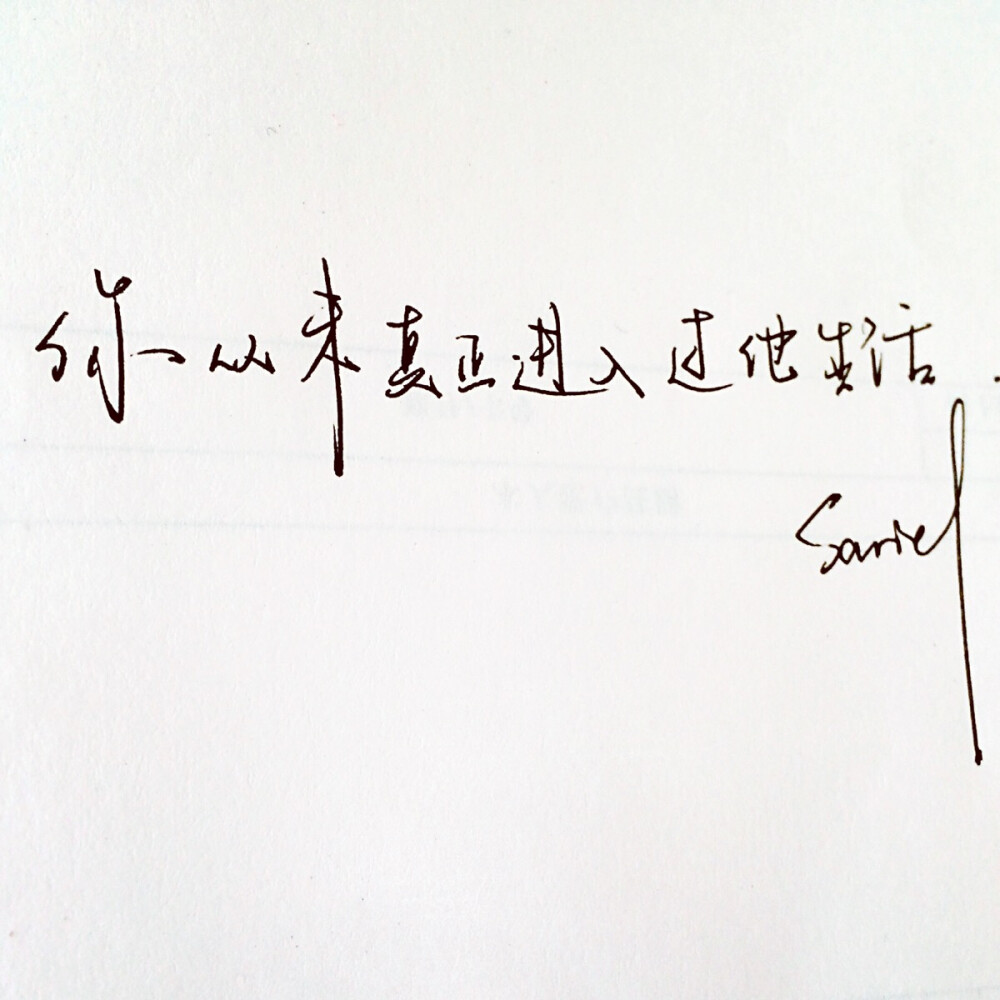 你从未真正进入过他生活.
Sariel